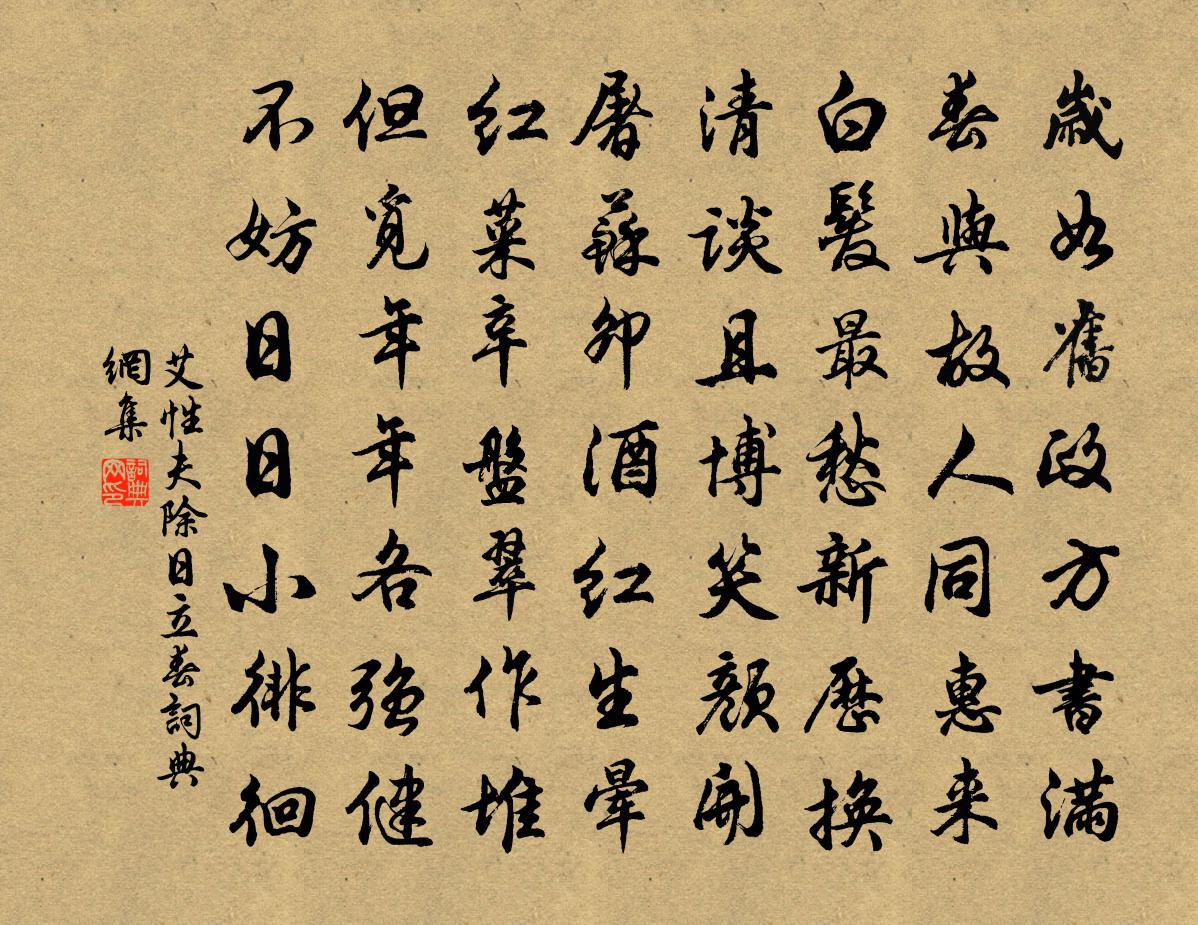 歲如舊政方書滿
春與故人同惠来
白髮最愁新歷換
清談且博笑顏開
屠蘇卯酒紅生暈
紅菜辛盤翠作堆
但覓年年各強健
不妨日日小徘徊
艾性夫除日立春詞典
網集
詞典
网印